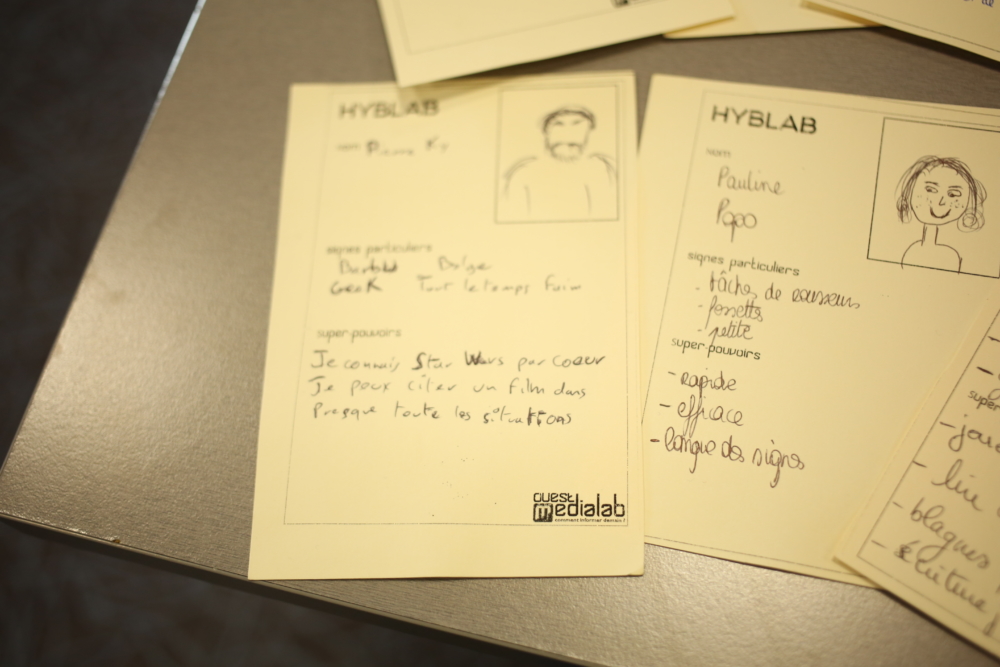 HYBLAB
nom Pierre Ky
signes particuliers
Barbu Belge
Geek Tout le temps faim
super-pouvoirs
Je connais Star Wars par coeur
Je peux citer un film dans
Presque toute les situations
ouest
medialab
comment informer demain ?
HYBLAB
nom
Pauline
Popo
signes particuliers
- tâches de rousseurs
- fossettes
- petite
super-pouvoirs
- rapide
- efficace
- langue des signes
super
- lire
- blagues